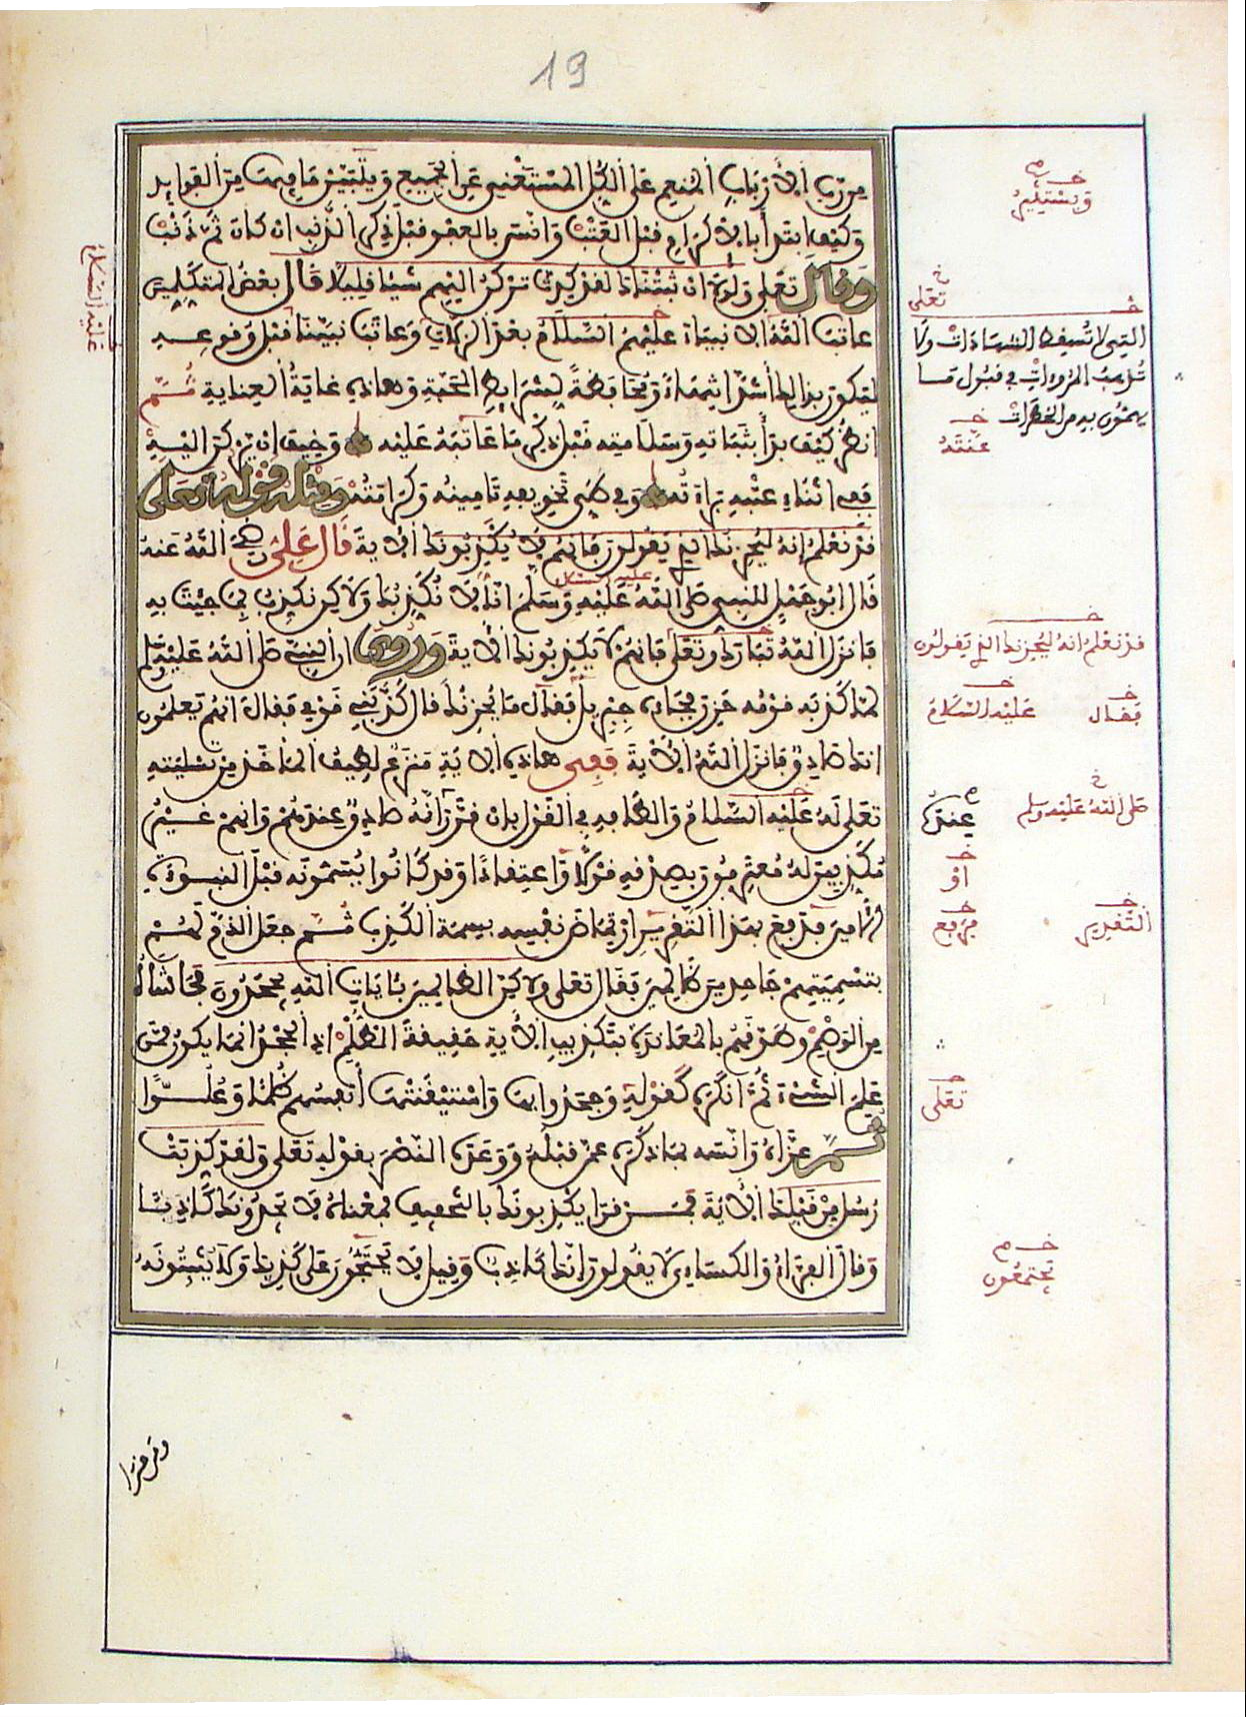 19
من رب الارباب المنعم على الكل المستغني عن الجميع ويتبين ما فيها من الفوائد
وكيف ابتدأ بالاكرام قبل العتب وانس بالعفو قبل ذكر الذنب ان كان ثم ذنب
وقال تعلى ولولا ان ثبتناك لقد كدت تركن اليهم شيئا قليلا قال بعض المتكلمين
عاتب الله الانبياء عليهم السلام بعد الزلات وعاتب نبينا قبل وقوعه
ليكون بذلك أشد انتهاء ومحافظة لشرائط المحبة وهاذه غاية العناية ثم
انظر كيف بدأ بثباته وسلامته قبل ذكر ما عاتبه عليه وخيف ان يركن اليه
ففي اثناء عتبه براءته وفي طي تخويفه تامينه وكرامته ومثله قوله تعلى
قد نعلم إنه ليحزنك الذي يقولون فإنهم لا يكذبونك الاية قال علي رضي الله عنه
قال ابو جهل للنبي صلى الله عليه وسلم انا لا نكذبك ولاكن نكذب بما جئت به
عليه السلام
فانزل الله تبارك وتعلى فانهم لا يكذبونك الاية وروي ان النبي صلى الله عليه وسلم
لما كذبه قومه حزن فجاءه جبريل فقال ما يحزنك قال كذبني قومي فقال انهم يعلمون
انك صادق فانزل الله الاية ففي هاذه الاية منزع لطيف الماخذ من تسليته
تعلى له عليه السلام والطافه في القول بان قرر انه صادق عندهم وانهم غير
مكذبين له معترفون بصدقه قولا واعتقادا وقد كانوا يسمونه قبل النبوءة
الامين فدفع بهذا التقرير ارتماض نفسه بسمة الكذب ثم جعل الذم لهم
بتسميتهم جاحدين ظالمين فقال تعلى ولاكن الظالمين بئايات الله يجحدون فحاشاه
من الوصم وطوقهم بالمعاندة بتكذيب الاية حقيقة الظلم اذ الجحد انما يكون ممن
علم الشيء ثم انكره كقوله وجحدوا بها واستيقنتها أنفسهم ظلما وعلوا
ثم عزاه وانسه بما ذكره عمن قبله ووعده النصر بقوله تعلى ولقد كذبت
رسل من قبلك الاية فمن قرأ يكذبونك بالتخفيف فمعناه لا يجدونك كاذبا
وقال الفراء والكسائي لا يقولون إنك كاذب وقيل لا يحتجون على كذبك ولا يثبتونه
ويستثير
تعلى
التي لا تسقط الشهادات ولا
تذهب المروءات في قبول ما
يهمون به من الخطرات
عنته
قد نعلم انه ليحزنك الذي يقولون
فقال عليه السلام
صلى الله عليه وسلم عندك
او
التقدير فرفع
تعلى
يجتمعون
عليه السلام
ومن قرأ